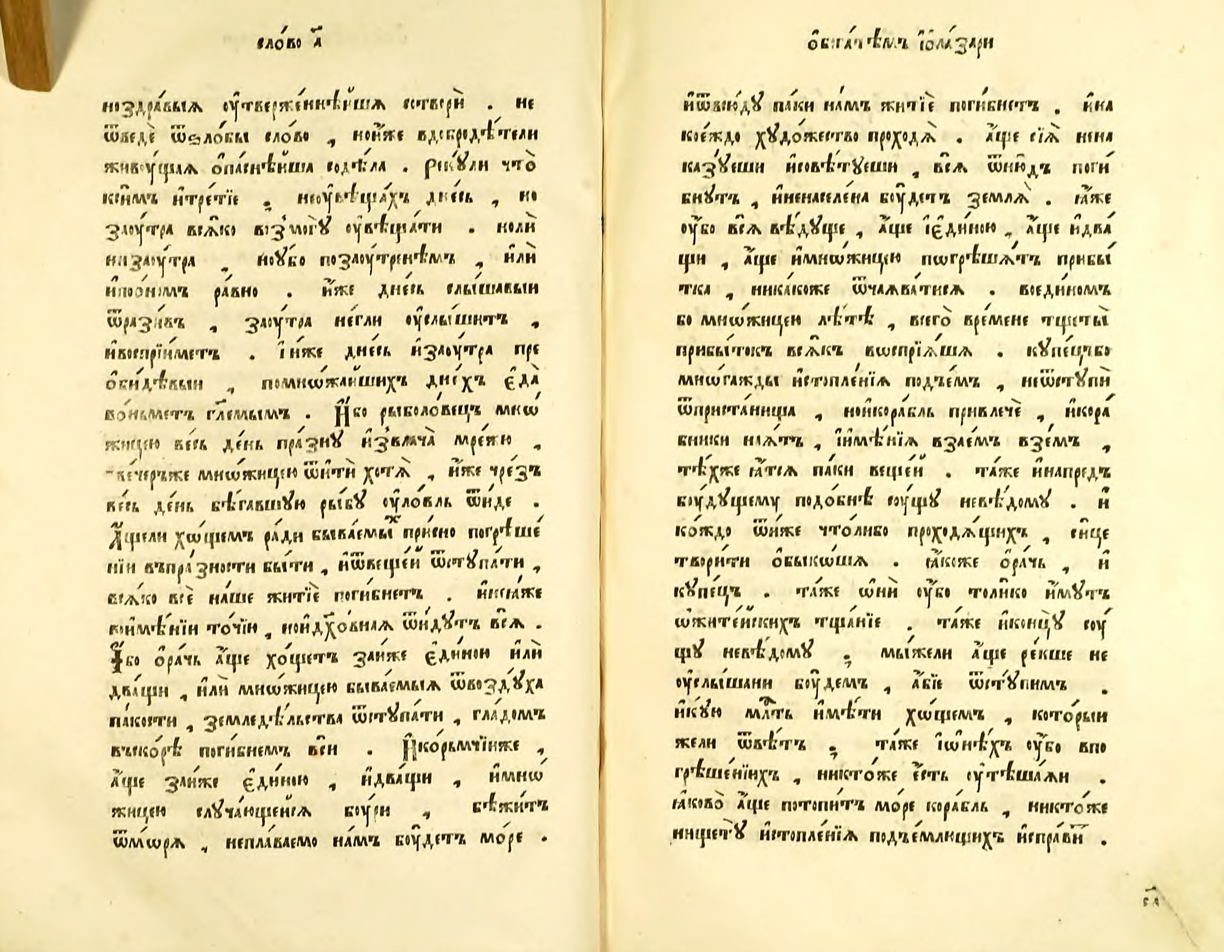 сло́во а҃
ноздра́выѧ ᲂу҆тверже́ннѣйшѧ сотворѝ . не
ѿведѐ ѿѕло́бы сло́во , нои҆́же вдобродѣ́тели
живꙋ́щаѧ ѻ҆па́снѣйша содѣ́ла . Реку́ли что̀
ксим́ъ и҆тре́тїе , неᲂу҆вѣща́хъ дне́сь , но
заᲂу́тра всѧ́ко возмо́гꙋ ᲂу҆вѣща́ти . ноли̑
низаᲂу́тра , ноу҆́бо позаᲂу́тренѣмъ , и҆лѝ
и҆поо́номъ ра́вно . и҆́же дне́сь слы́шавыи
ѿрази́въ , заᲂу́тра не́гли ᲂу҆слы́шитъ ,
и҆воспрїи́метъ . І҆и҆́же дне́сь и҆заᲂу́тра пре
ѻ҆би́дѣвыи , помнѡ́жайшихъ дне́хъ є҆да̀
во́ньметъ гл҃емымъ . И҆́бо рыболо́вецъ мнѡ
жицею ве́сь де́нь пра́зну и҆звлача̀ мре́жю ,
вече́рꙋже мнѡ́жицею ѿитѝ хотѧ̀ , и҆́же чре́зъ
ве́сь де́нь бѣ́гавшую ры́бꙋ ᲂу҆ло́вль ѿи́де .
А҆́щели хѡ́щемъ ра́ди быва́емыⷯ при́сно погрѣше́
нїи въпра́зности бы́ти , и҆ѿвеще́й ѿстꙋпа́ти ,
всѧ́ко всѐ на́ше житїѐ поги́бнетъ . и҆нсїѧ́же
вои҆мѣ́нїи то́чїи , нои҆дꙋхо́внаѧ ѿи́дꙋтъ всѧ̀ .
И҆́бо ѻ҆ра́чь а҆́ще хо́щетъ зане́же є҆ди́ною и҆лѝ
два́щи , и҆лѝ мнѡ́жицею быва́емыѧ ѿво́здꙋха
па́кости , земледѣ́льства ѿстꙋпа́ти , гла́домъ
въско́рѣ поги́бнемъ всѝ . И҆ко́рьмчїиже ,
а҆́ще зане́же є҆ди́ною , и҆два́щи , и҆мнѡ́
жицею слꙋча́ющейсѧ бо́ури , бѣжи́тъ
ѿмо́рѧ , непла́ваемо на́мъ бо́удетъ мо́ре .
ѻ҆бога́тѣмъ і҆ѻла́зари
и҆ѿвсю́дꙋ па́ки на́мъ житїѐ поги́бнетъ . и҆на
кое́ждо хꙋдо́жество проходѧ̀ . а҆́ще сїѧ̀ нена
ка́зꙋеши и҆совѣ́тꙋеши , всѧ̀ ѿню́дъ поги́
бнꙋтъ , и҆ненаселе́на бо́удетъ землѧ̀ . ꙗ҆́же
ᲂу҆́бо всѧ̀ вѣ́дꙋще , а҆́ще і҆є҆ди́ною , а҆́ще и҆два́
щи , а҆́ще и҆мнѡ́жицею пѡгрѣша́тъ прибы́
тка , ника́коже ѿчаѧва́тисѧ . воеди́номъ
бо мнѡ́жицею лѣ́тѣ , всего̀ вре́мене тщеты̀
прибы́токъ всѧ́къ вѡспрїѧ́шѧ . кꙋпе́цъбо
мно́гажды и҆стопле́нїѧ подъе́мъ , неѿстꙋпѝ
ѿприста́нища , нои҆кора́бль привлечѐ , и҆кора́
бники ноѧ́тъ , і҆и҆мѣ́нїѧ взае́мъ взе́мъ ,
тѣ́хже ꙗ҆́тсѧ па́ки веще́й . та́же и҆напре́дъ
бо́удꙋщемꙋ подо́бнѣ со́ущꙋ невѣ́домꙋ . и҆
ко́ждо ѿи́же что́либо проходѧ́щихъ , си́це
твори́ти ѻ҆быко́шѧ . ꙗ҆́коже ѻ҆ра́чь , и҆
кꙋпе́цъ . та́же ѡ҆нѝ ᲂу҆́бо толи́ко и҆́мꙋтъ
ѡ҆жите́йскихъ тща́нїе . та́же и҆концꙋ̀ соу́
щꙋ невѣ́домꙋ ; мы́жели а҆́ще ре́кше не
ᲂу҆слы́шани бо́удемъ , а҆́бїе ѿстꙋ́пимъ .
и҆кꙋ́ю мл҃ть и҆мѣ́ти хѡ́щемъ , кото́рыи
жели ѿвѣ́тъ ; та́же і҆ѡ҆нѣ́хъ ᲂу҆́бо впо
грѣше́нїихъ , никто́же є҆́сть ᲂу҆тѣша́ѧи .
ꙗ҆́ково а҆́ще пото́питъ мо́ре кора́бль , никто́же
нищетꙋ̀ и҆стопле́нїѧ подъе́млющихъ и҆спра́ви .